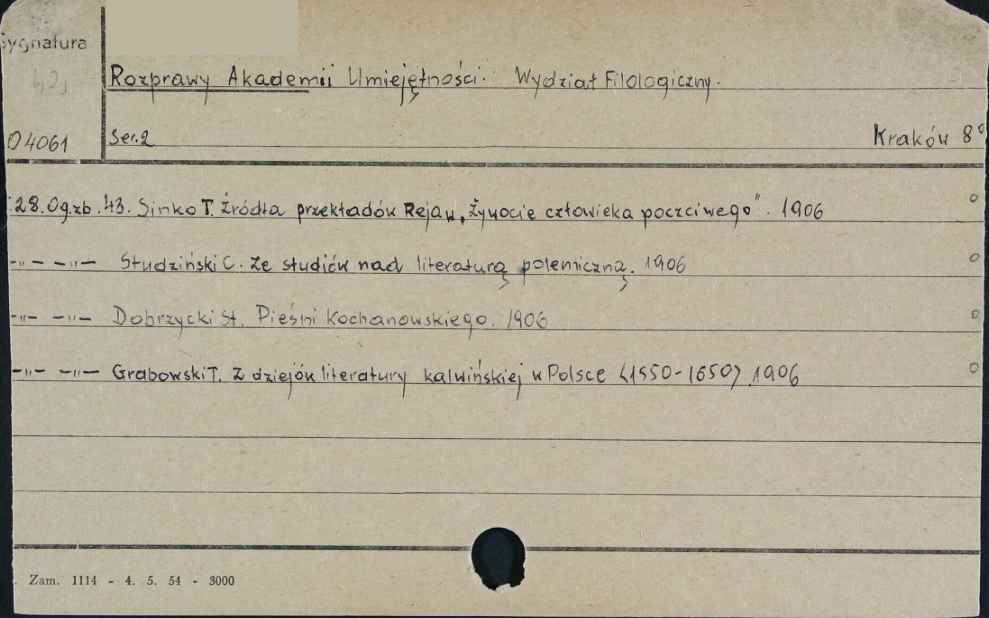 Sygnatura
Rozprawy Akademii Umiejętności. Wydział Filologiczny.
O 4061 Ser. 2 Kraków 8°
28. Og. zb. 43. Sinko T. Źródła przekładów Reja w „Żywocie człowieka poczciwego". 1906
-"- -"- Studziński C. Ze studiów nad literaturą polemiczną. 1906
-"- -"- Dobrzycki St. Pieśni Kochanowskiego. 1906
-"- -"- Grabowski T. Z dziejów literatury kalwińskiej w Polsce (1550-1650) 1906
Zam. 1114 - 4. 5. 54 - 3000